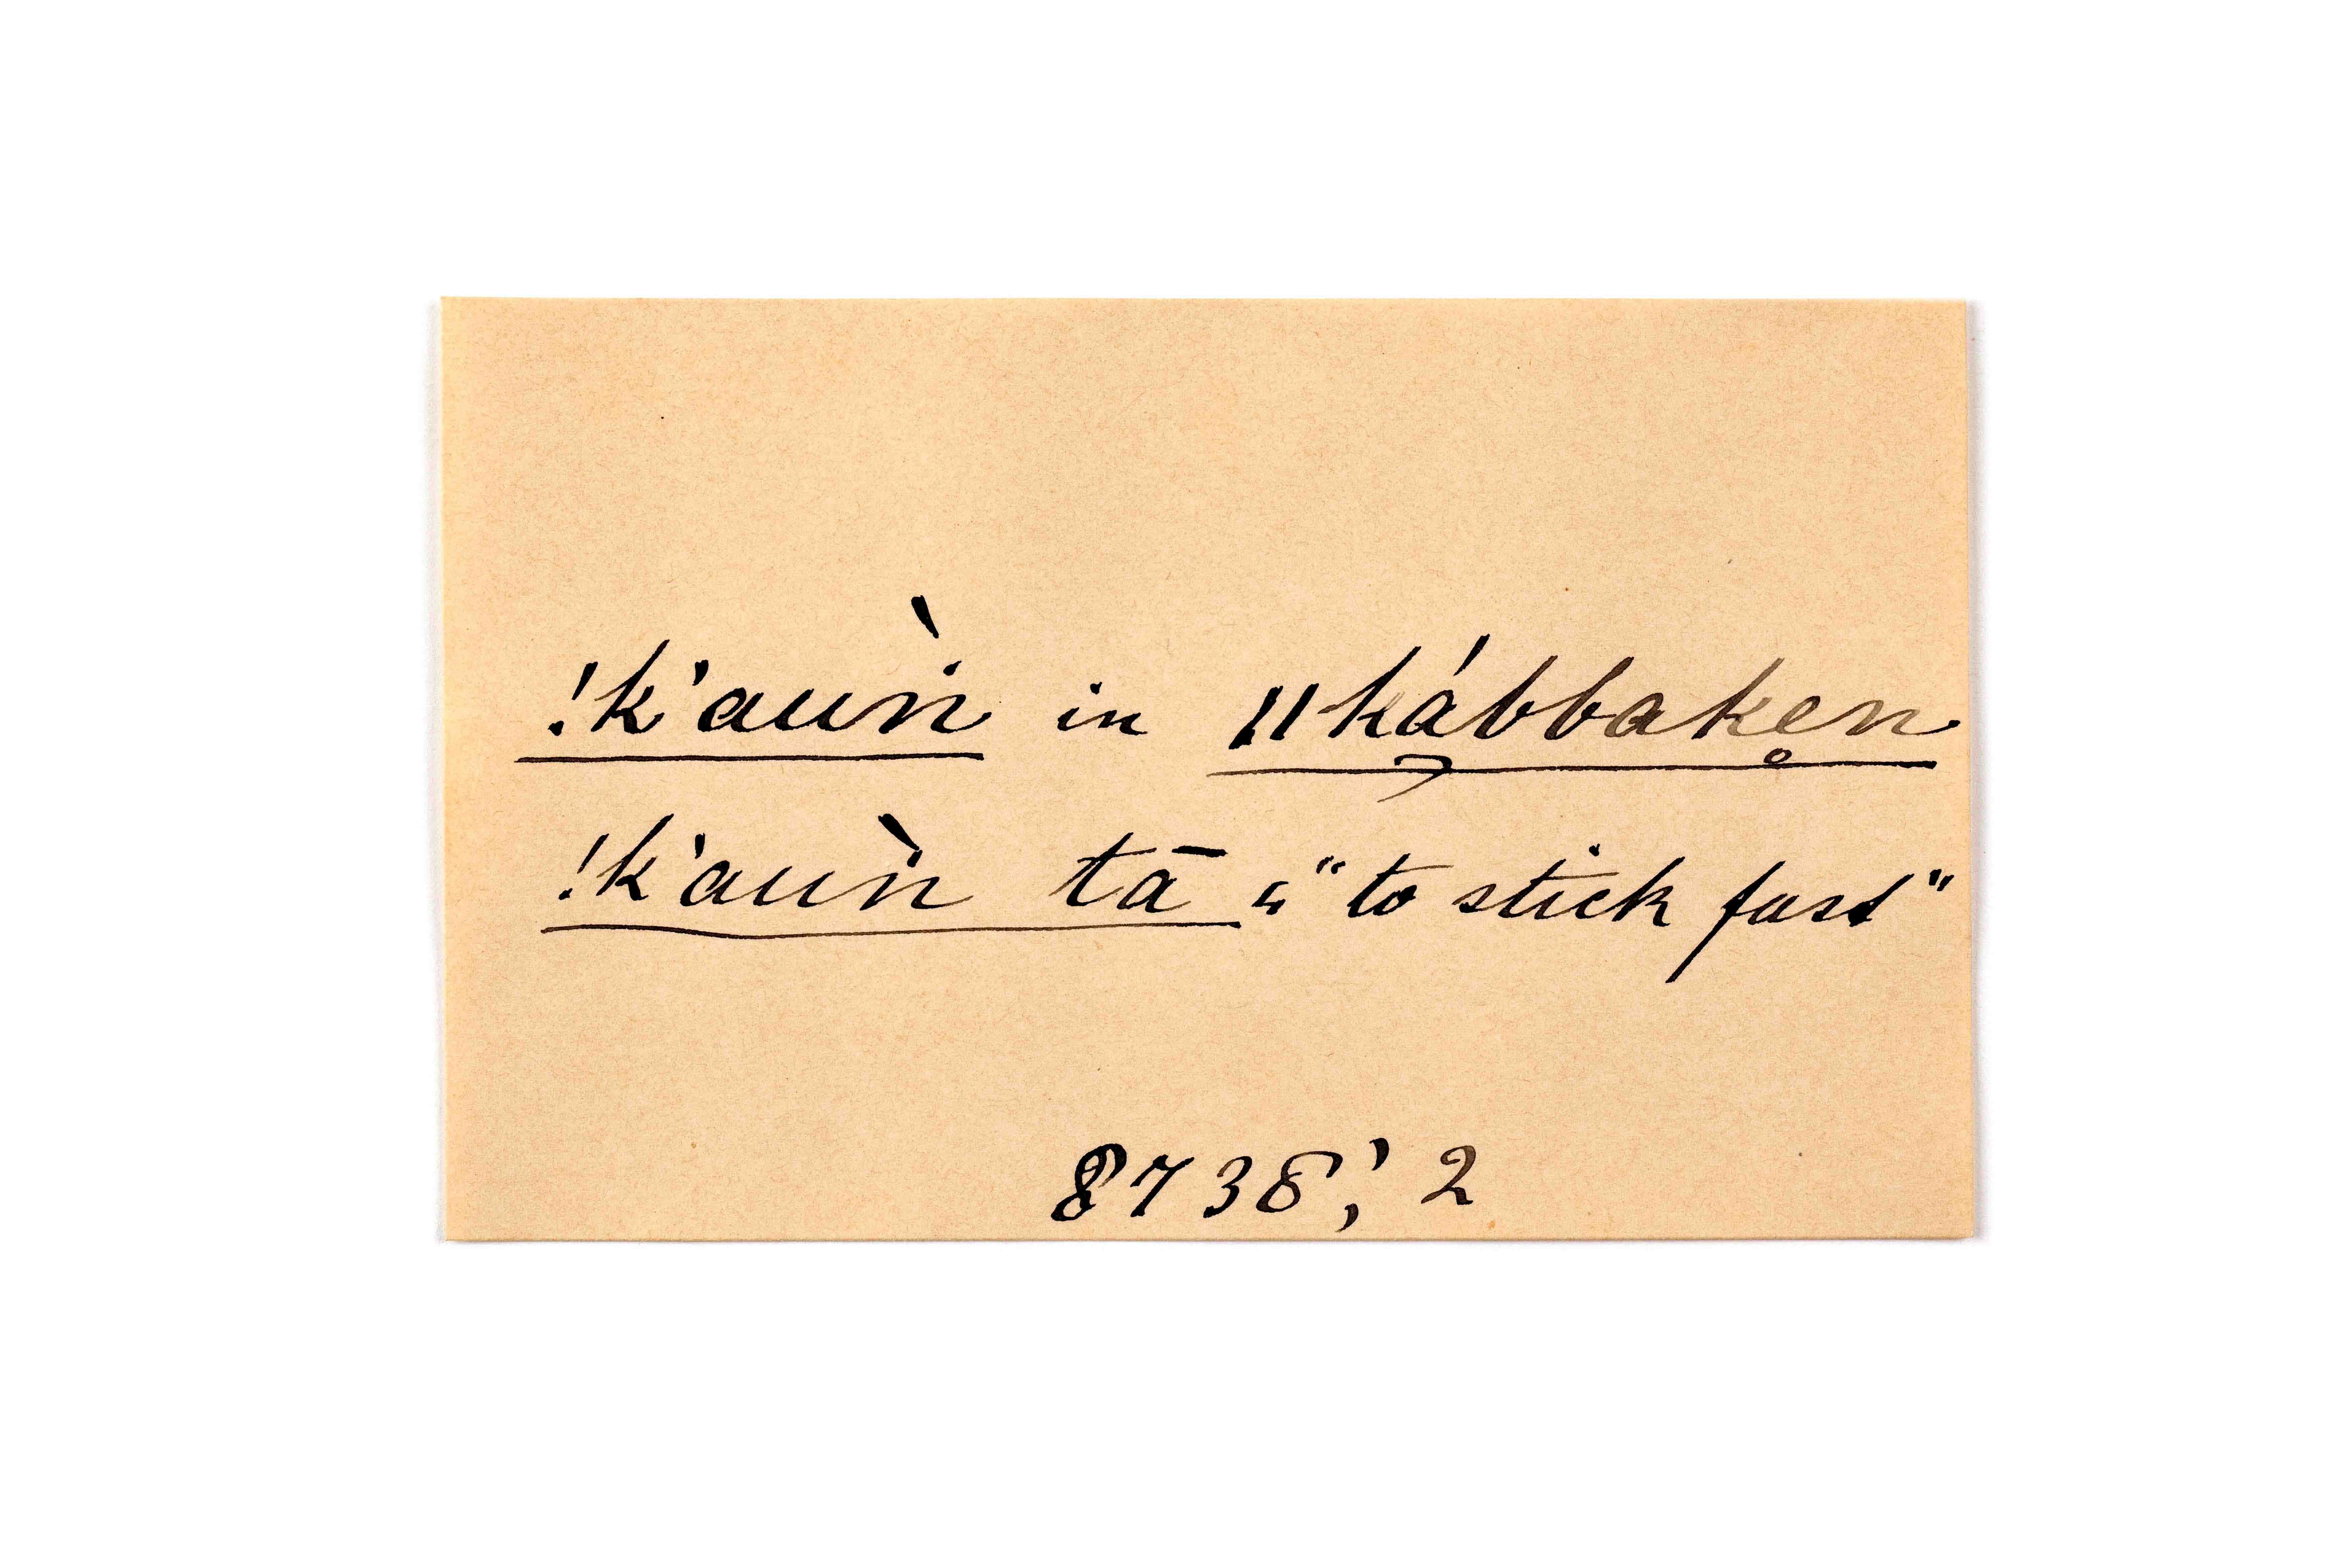 !k'auṅ̀ in ǁkábbakẹn
!k'auṅ̀ tā is "to stick fast"
8738; 2